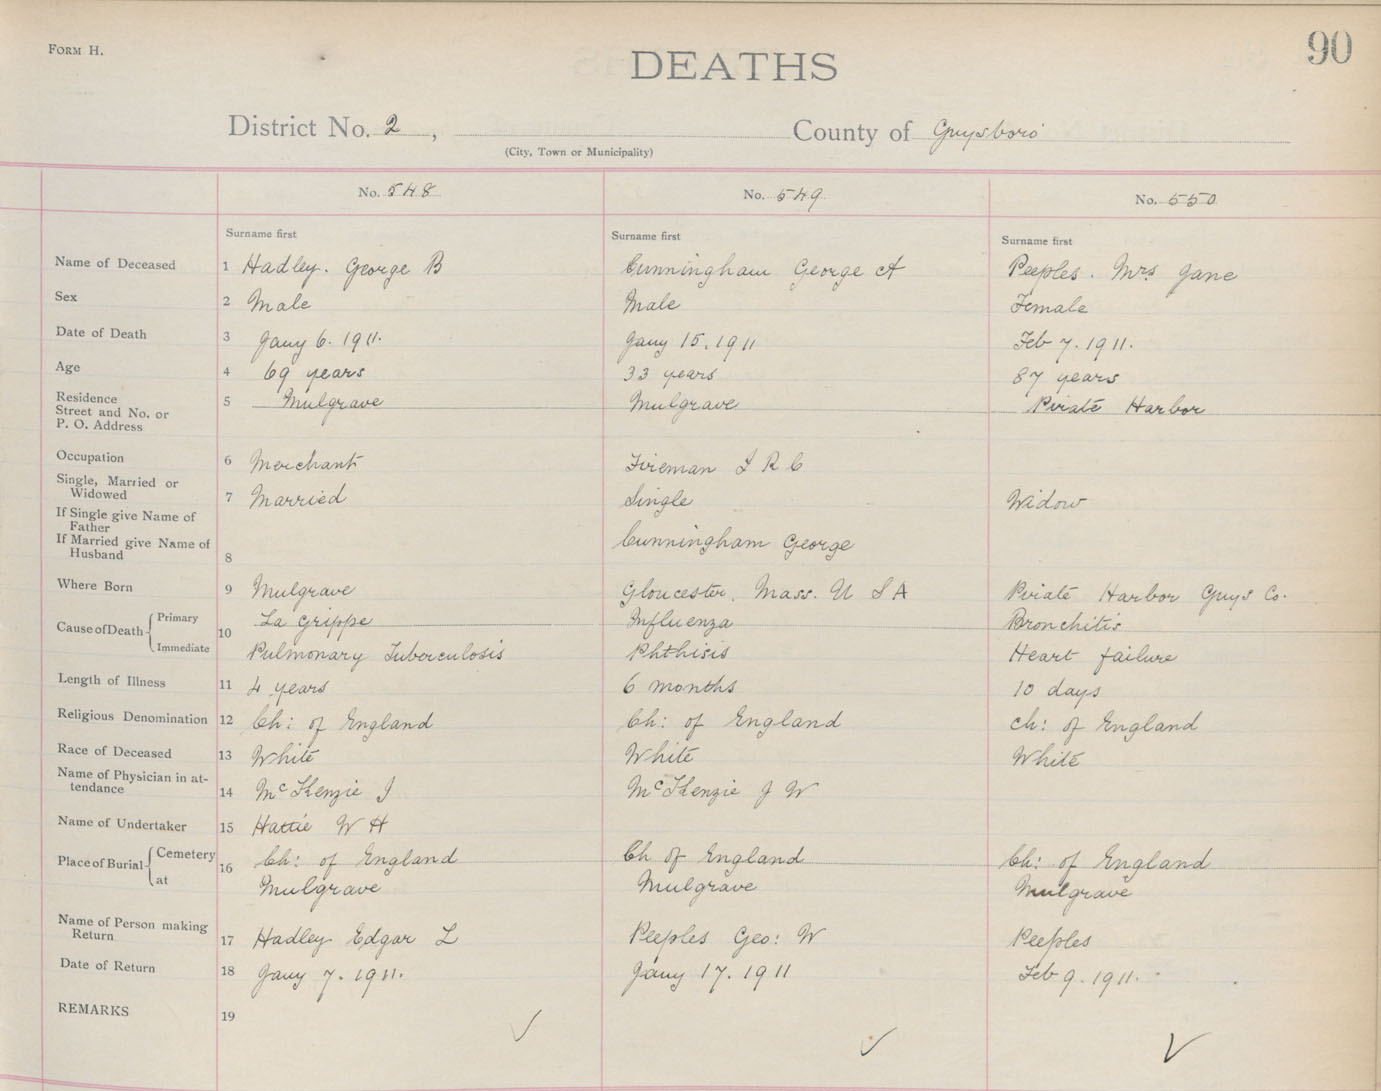 FORM H.
90
DEATHS
District No. 2, County of Guysboro
(City, Town or Municipality)
No. 548 No. 549 No. 550
Surname first Surname first Surname first
Name of Deceased 1 Hadley. George B Cunningham George A Peeples. Mrs Jane
Sex 2 Male Male Female
Date of Death 3 Jany 6. 1911. Jany 15. 1911 Feb 7. 1911.
Age 4 69 years 33 years 87 years
Residence
Street and No. or 5 Mulgrave Mulgrave Pirate Harbor
P. O. Address
Occupation 6 Merchant Fireman I R C
Single, Married or
Widowed 7 Married Single Widow
If Single give Name of
Father
If Married give Name of Cunningham George
Husband 8
Where Born 9 Mulgrave Gloucester, Mass. U S A Pirate Harbor Guys Co.
Cause of Death Primary 10 La Grippe Influenza Bronchitis
Immediate Pulmonary Tuberculosis Phthisis Heart failure
Length of Illness 11 4 years 6 months 10 days
Religious Denomination 12 Ch: of England Ch: of England Ch: of England
Race of Deceased 13 White White White
Name of Physician in at-
tendance 14 McKenzie J McKenzie J W
Name of Undertaker 15 Hattie W H
Place of Burial Cemetery 16 Ch: of England Ch of England Ch: of England
at Mulgrave Mulgrave Mulgrave
Name of Person making
Return 17 Hadley Edgar L Peeples Geo: W Peeples
Date of Return 18 Jany 7. 1911. Jany 17. 1911 Feb 9. 1911.
REMARKS 19